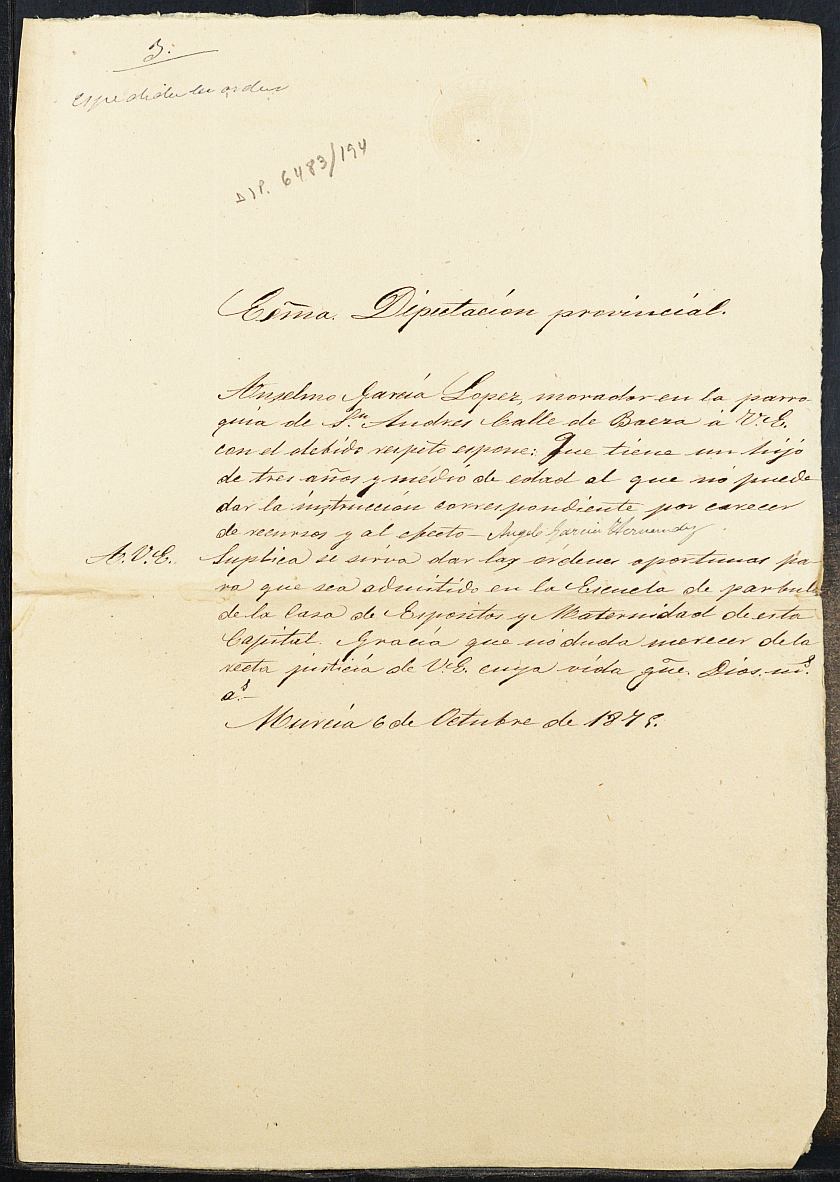 3.
espedida la orden
DIP. 6483/194
Ecm̃a. Diputación provincial.
Anselmo García Lopez, morador en la parro
quia de Sn. Andres Calle de Baeza á V.E.
con el debido respeto espone: Que tiene un hijo
de tres años y médio de edad al que nó puede
dar la instrucción correspondiente por carecer
de recursos y al efecto - Angel Garcia Hernandez.
A.V.E. Suplica se sirva dar las órdenes oportunas pa
ra que sea admitido en la Escuela de parbul
de la Casa de Espositos y Maternidad de esta
Capital. Gracia que nó duda merecer de la
recta justicia de V.E. cuya vida gũe. Dios ms.
as.-
Murcia 6 de Octubre de